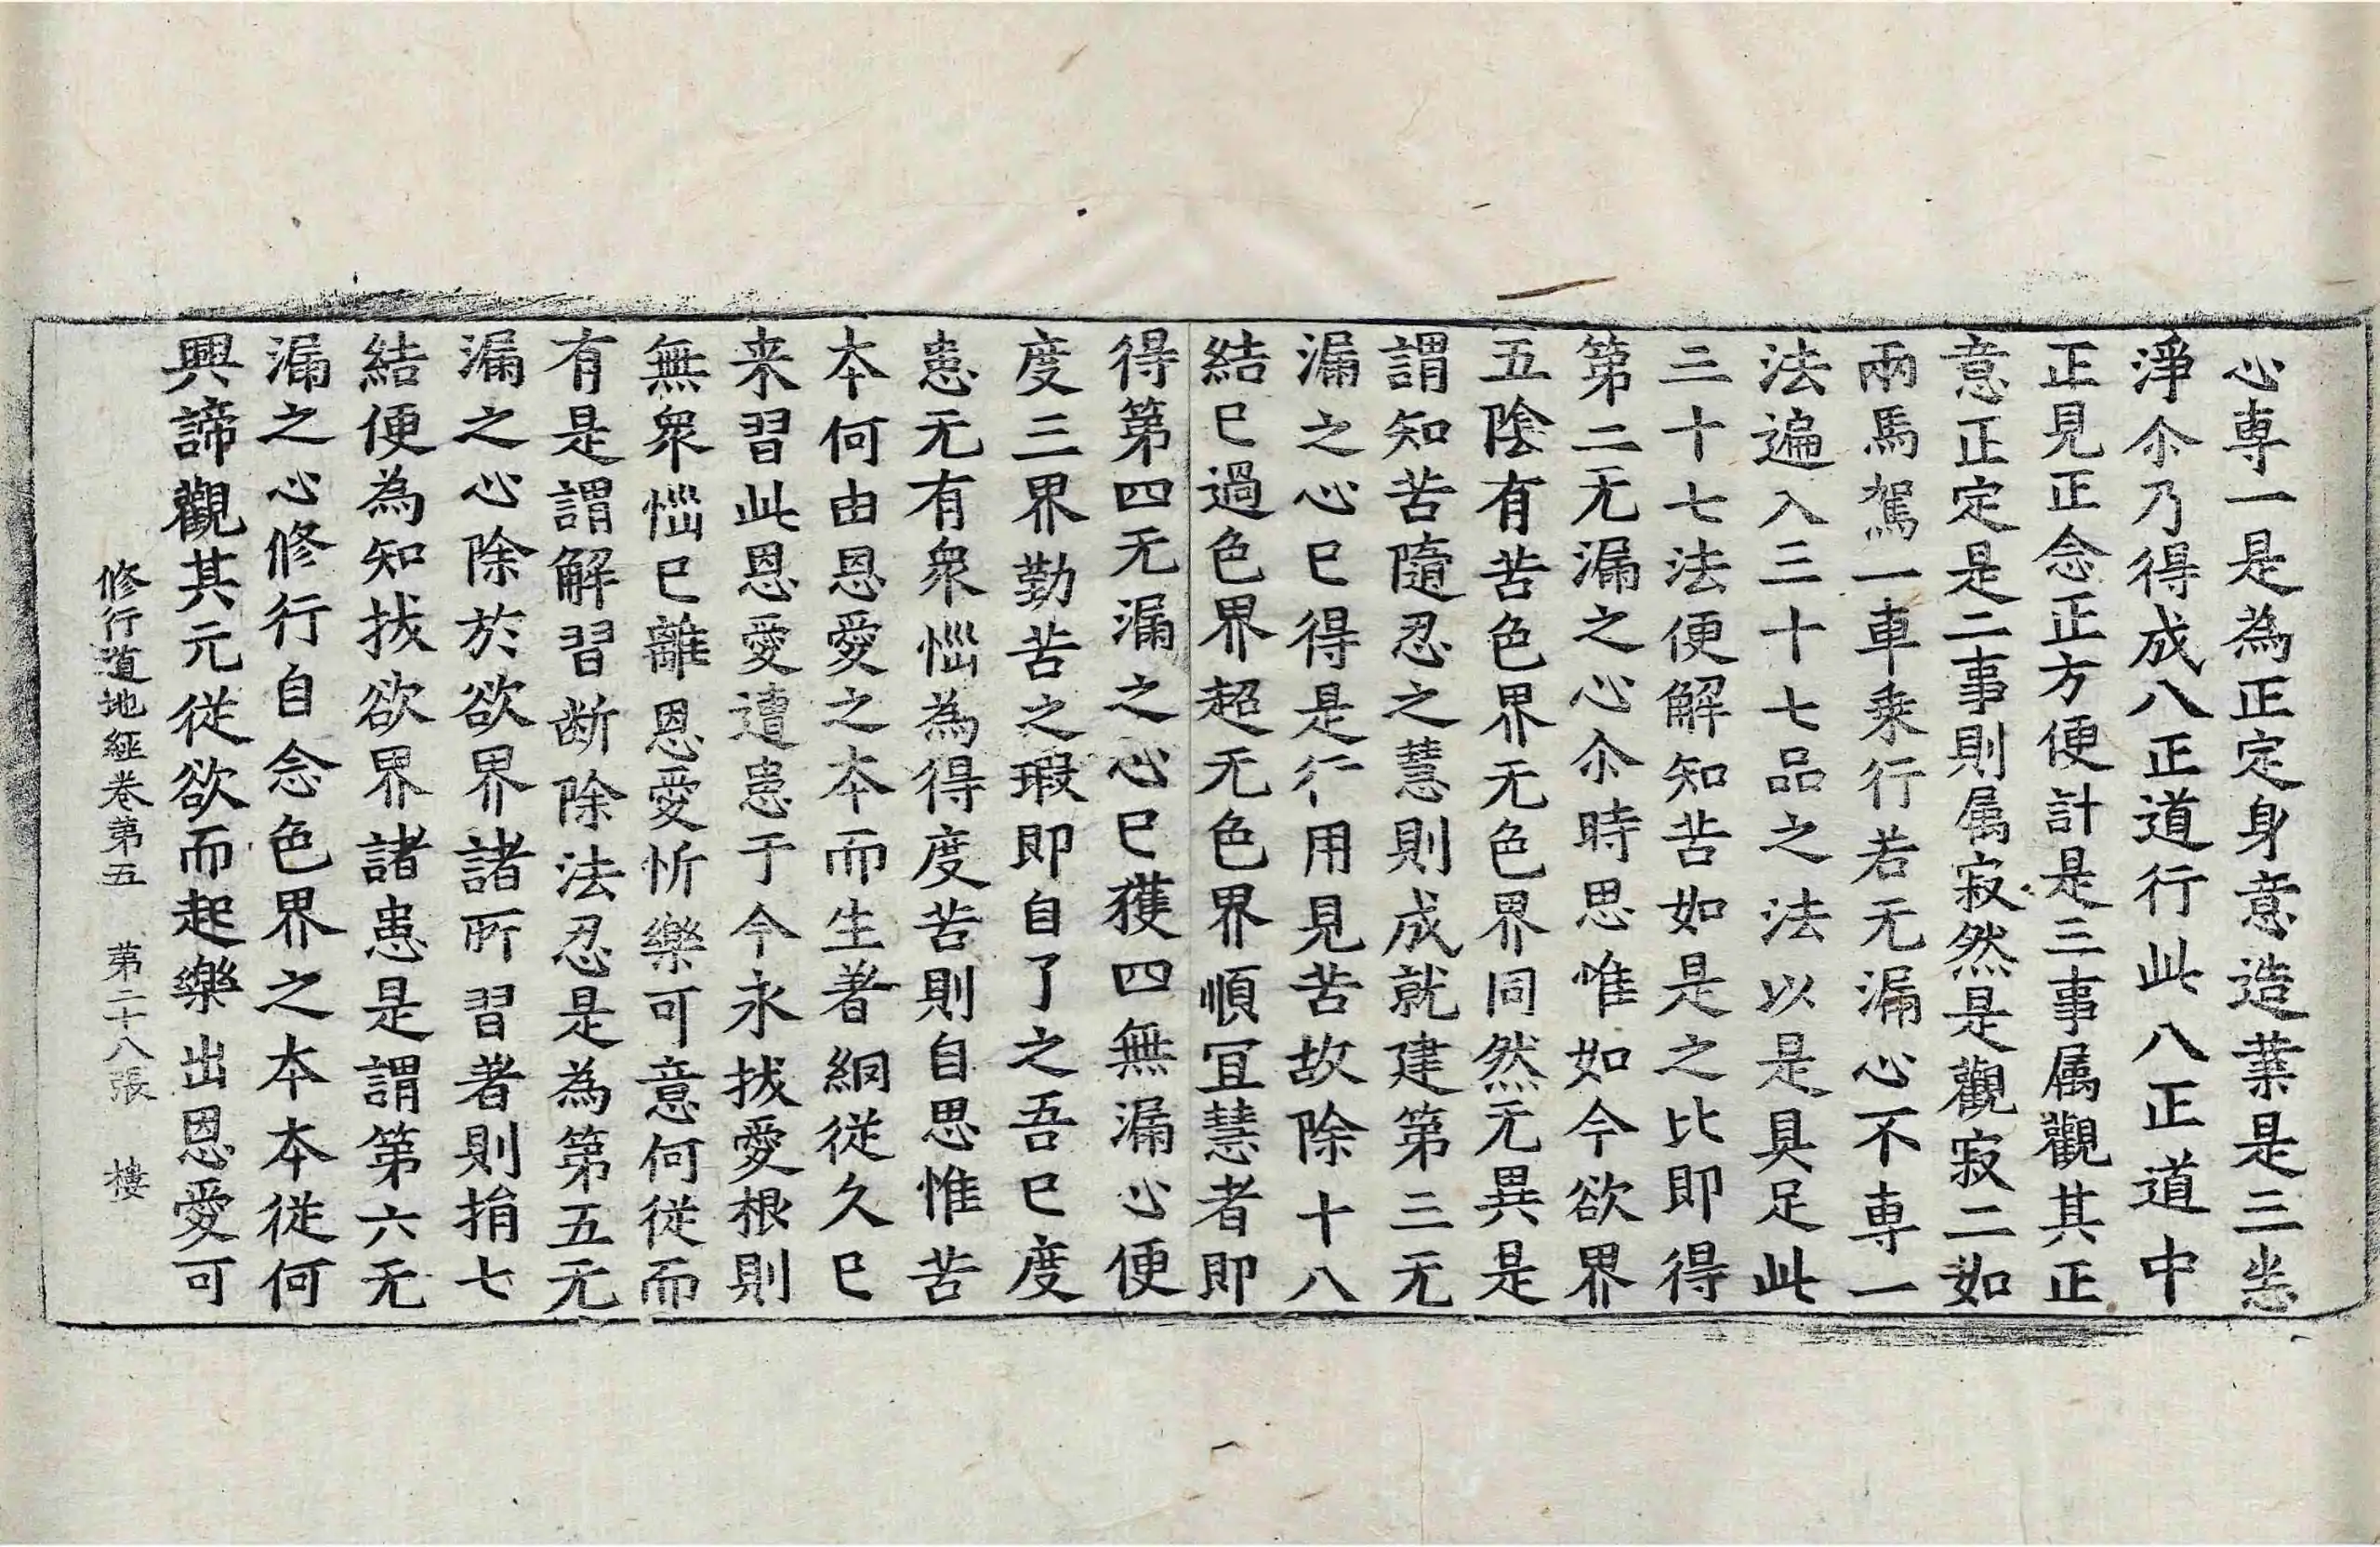 心専一是為正定身意造業是三恙
淨尒乃得成八正道行此八正道中
正見正念正方便計是三事属觀其正
意正定是二事則属寂然是觀寂二如
兩馬駕一車乗行若无漏心不専一
法遍入三十七品之法以是具足此
三十七法便解知苦如是之比即得
第二无漏之心尒時思惟如今欲界
五陰有苦色界无色界同然无異是
謂知苦隨忍之慧則成就建第三无
漏之心已得是行用見苦故除十八
結已過色界超无色界順宜慧者即
得第四无漏之心已獲四無漏心便
度三界勤苦之瑕即自了之吾已度
患无有衆惱為得度苦則自思惟苦
本何由恩愛之本而生著網從久已
来習此恩愛遭患于今永拔愛根則
無衆惱已離恩愛忻樂可意何從而
有是謂解習断除法忍是為第五无
漏之心除於欲界諸所習著則捐七
結便為知拔欲界諸患是謂第六无
漏之心修行自念色界之本本從何
興諦觀其元從欲而起樂出恩愛可
修行道地經卷第五　苐二十八張　樓